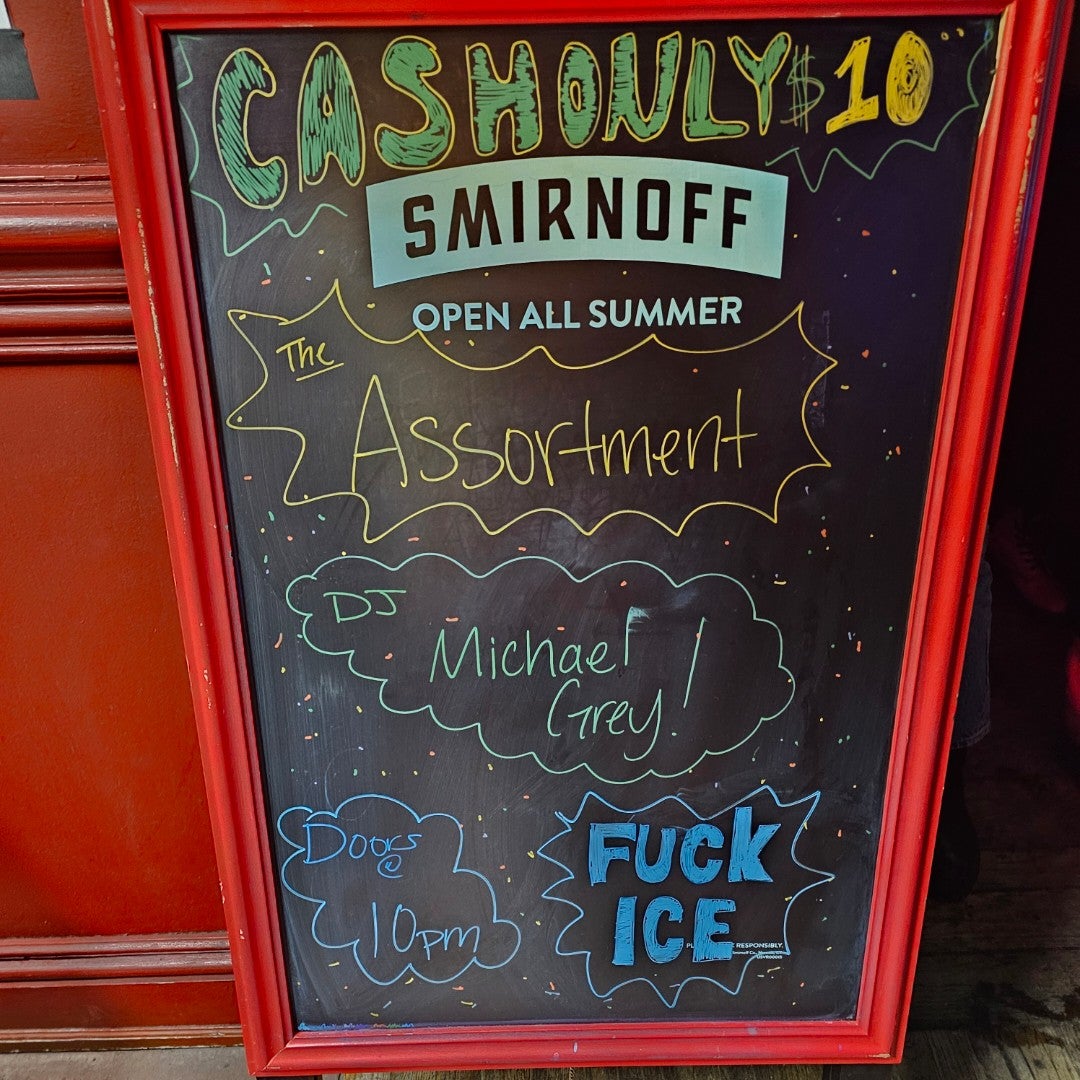 CASH ONLY $10
SMIRNOFF
OPEN ALL SUMMER
The
Assortment
DJ
Michael
Grey!
Doors
@
10pm
FUCK
ICE
RESPONSIBLY.